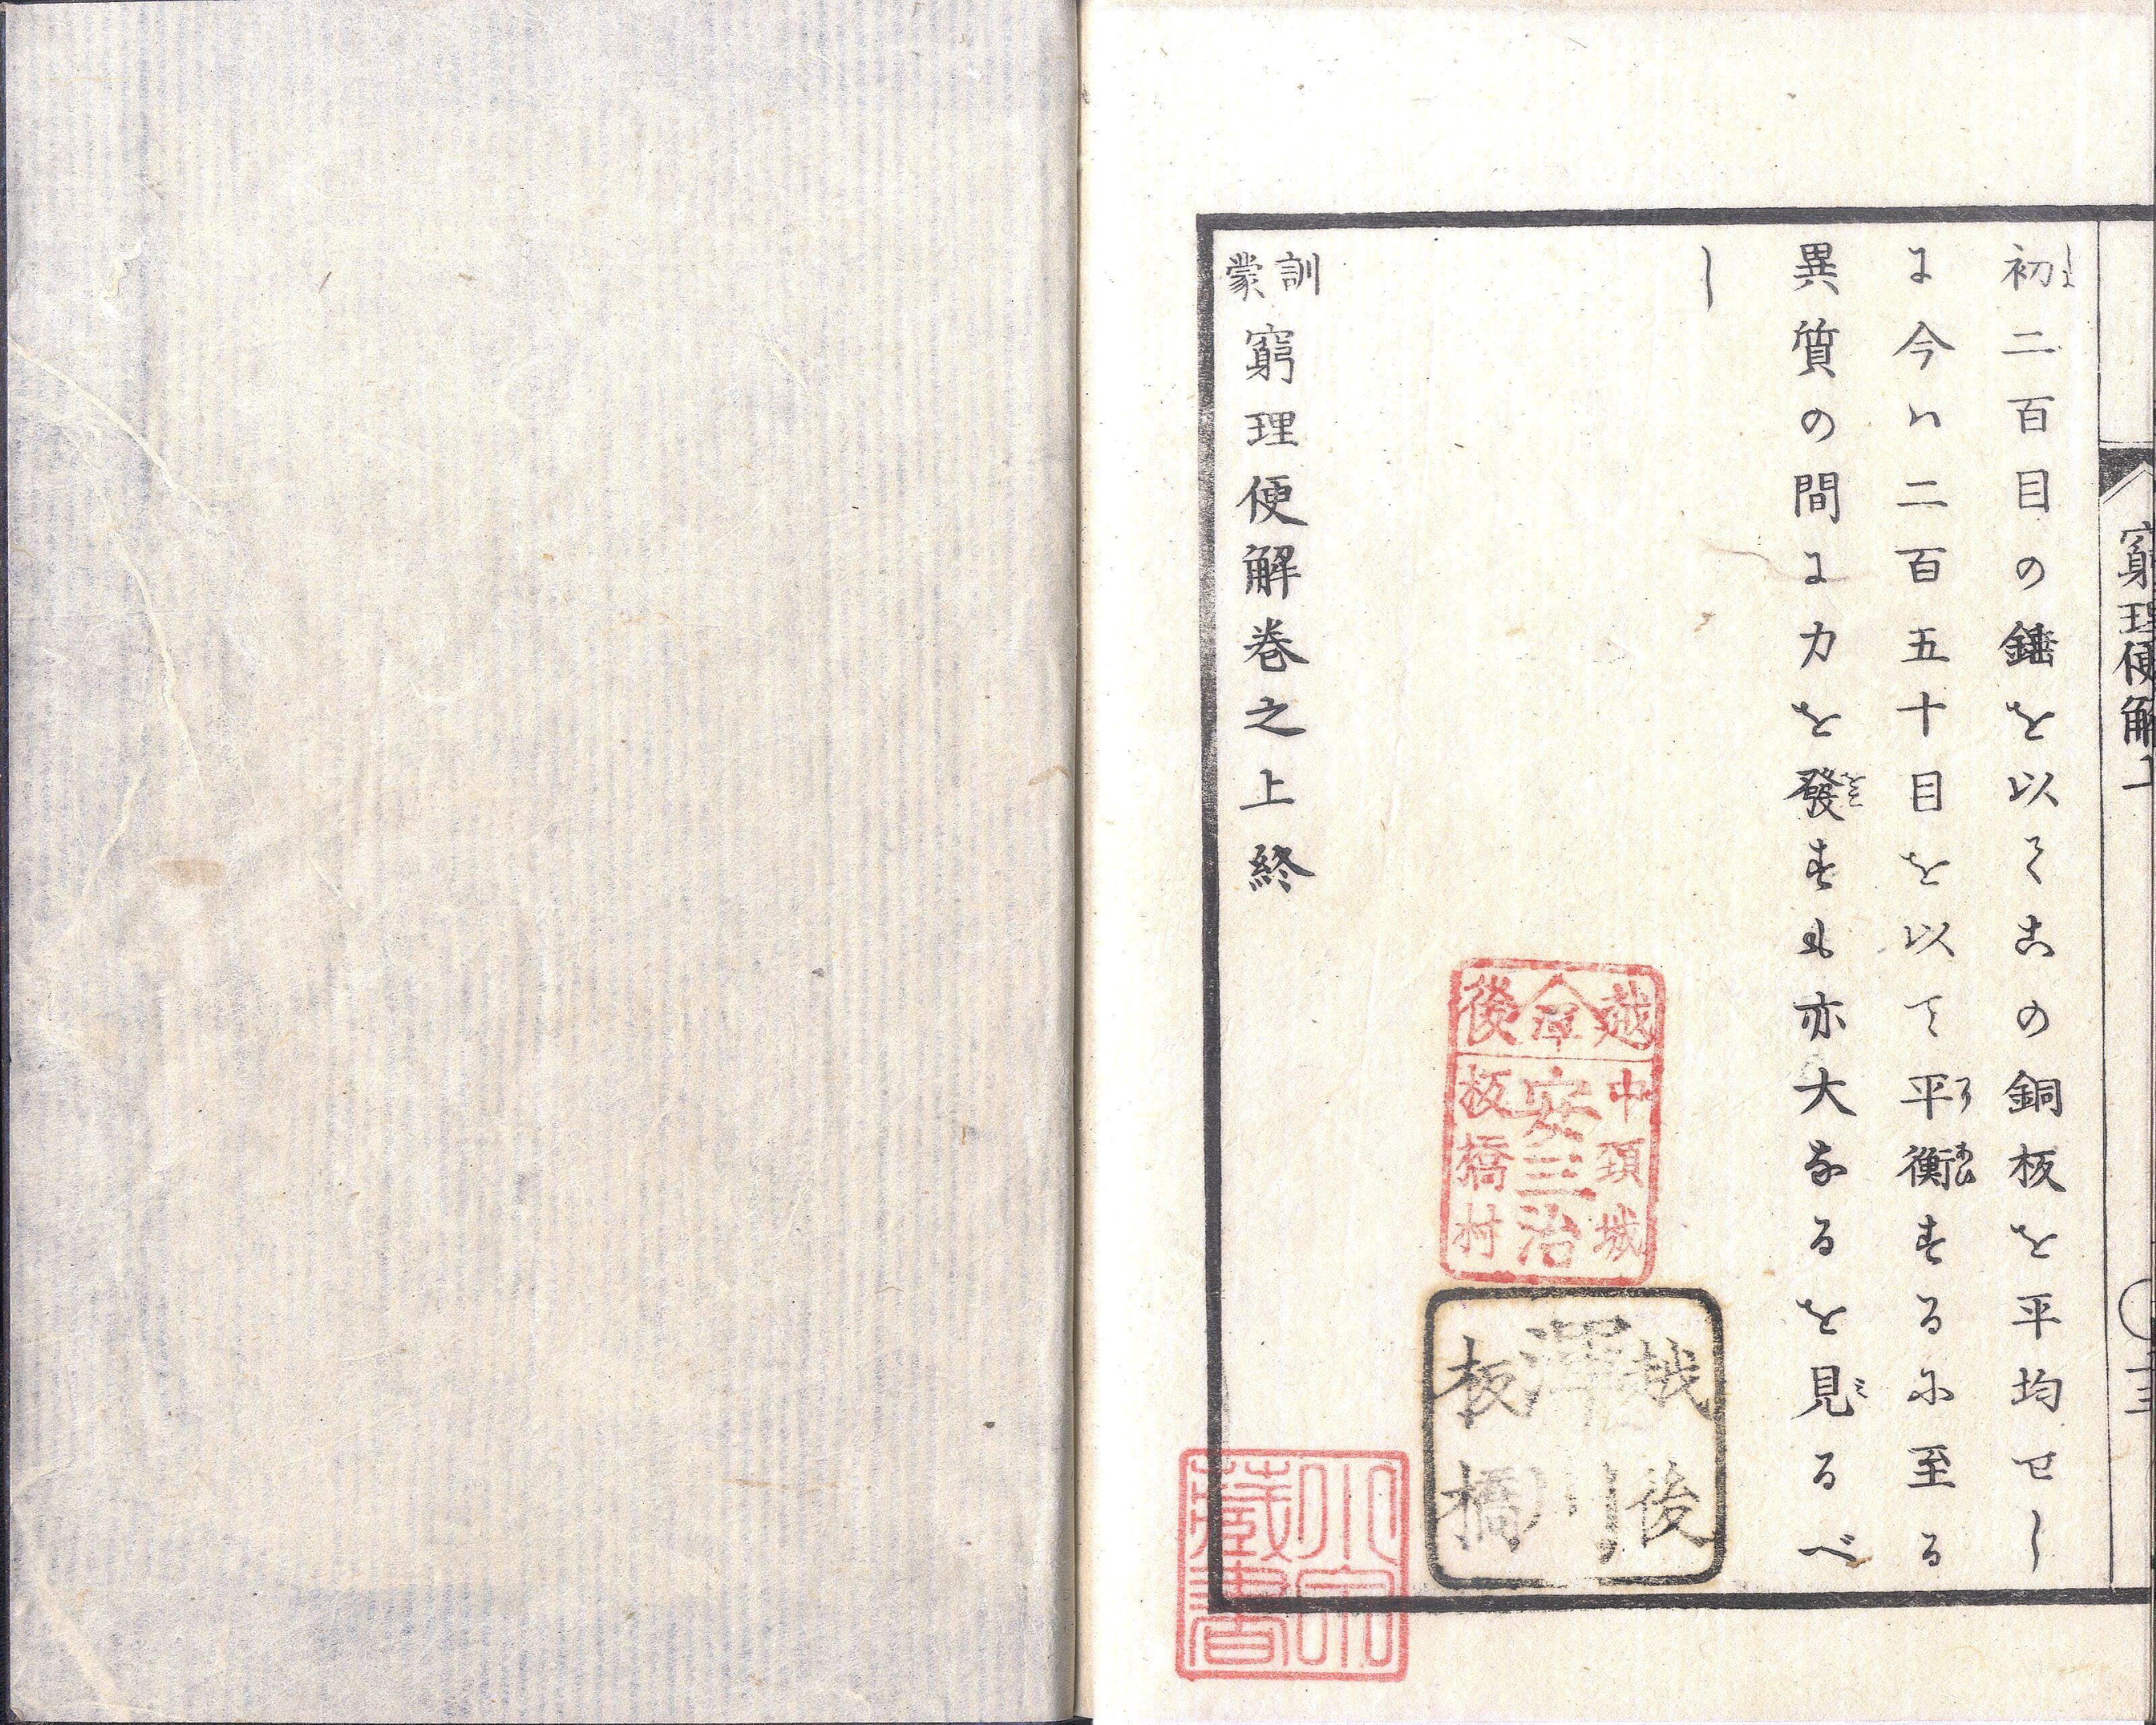 窮理便解上
初二百目の錘を以てこの銅板を平均せし
に今ハ二百五十目を以て平衡するに至る
異質の間に力を發すも亦大なるを見るべ
し
訓蒙 窮理便解巻之上終
越後
中頚城
安三治
板橋村
越後
澤
板橋
蔵書